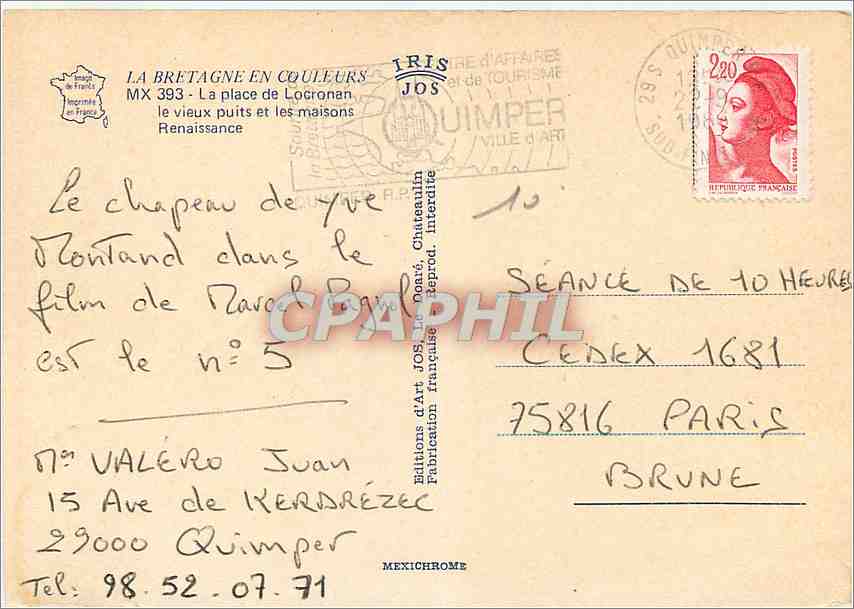 Image
de France
Imprimée
en France
LA BRETAGNE EN COULEURS
MX 393 - La place de Locronan
le vieux puits et les maisons
Renaissance
IRIS
JOS
TRE d'AFFAIRES
et de TOURISME
QUIMPER
VILLE d'ART
QUIMPER R.P.
29 S QUIMPER
SUD FIN
2,20
POSTES
REPUBLIQUE FRANÇAISE
10
Le chapeau de yve
Montand dans le
film de Marcel Pagnol
est le n° 5
Mr VALÉRO Juan
15 Ave de KERDRÉZEC
29000 Quimper
Tel: 98.52.07.71
Editions d'Art JOS, Le Doaré, Châteaulin
Fabrication française, Reprod. interdite
SÉANCE DE 10 HEURES
CEDEX 1681
75816 PARIS
BRUNE
CPAPHIL
MEXICHROME